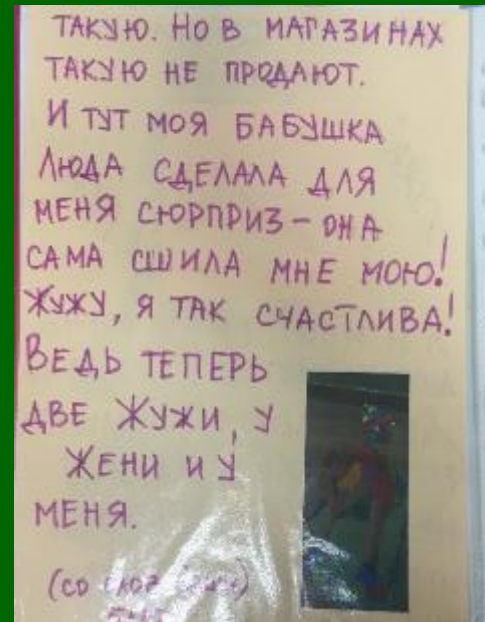 ТАКУЮ. НО В МАГАЗИНАХ
ТАКУЮ НЕ ПРОДАЮТ.
И ТУТ МОЯ БАБУШКА
ЛЮДА СДЕЛАЛА ДЛЯ
МЕНЯ СЮРПРИЗ – ОНА
САМА СШИЛА МНЕ МОЮ!
ЖУЖУ, Я ТАК СЧАСТЛИВА!
ВЕДЬ ТЕПЕРЬ
ДВЕ ЖУЖИ, У
ЖЕНИ И У
МЕНЯ.
(СО